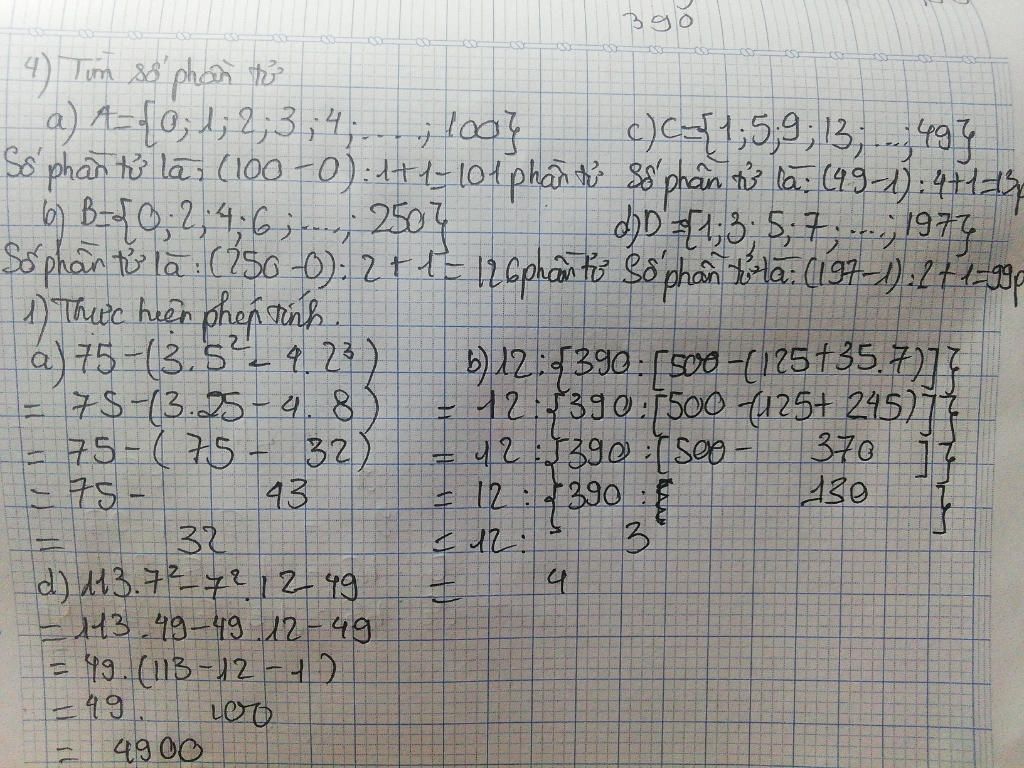 390
4) Tìm số phần tử
a) A={0;1;2;3;4;.....;100}
Số phần tử là: (100-0):1+1=101 phần tử
b) B={0;2;4;6;....;250}
Số phần tử là:(250-0):2+1=126 phần tử
c) C={1;5;9;13;...;49}
Số phần tử là:(49-1):4+1=13p
d) D={1;3;5;7;....;197}
Số phần tử là:(197-1):2+1=99p
1) Thực hiện phép tính.
a) 75-(3.5²-4.2³)
= 75-(3.25-4.8)
= 75-(75-32)
= 75-43
= 32
b) 12:{390:[500-(125+35.7)]}
= 12:{390:[500-(125+245)]}
= 12:{390:[500-370]}
= 12:{390:130}
= 12:3
= 4
d) 113.7²-7².12-49
= 113.49-49.12-49
= 49.(113-12-1)
= 49.100
= 4900